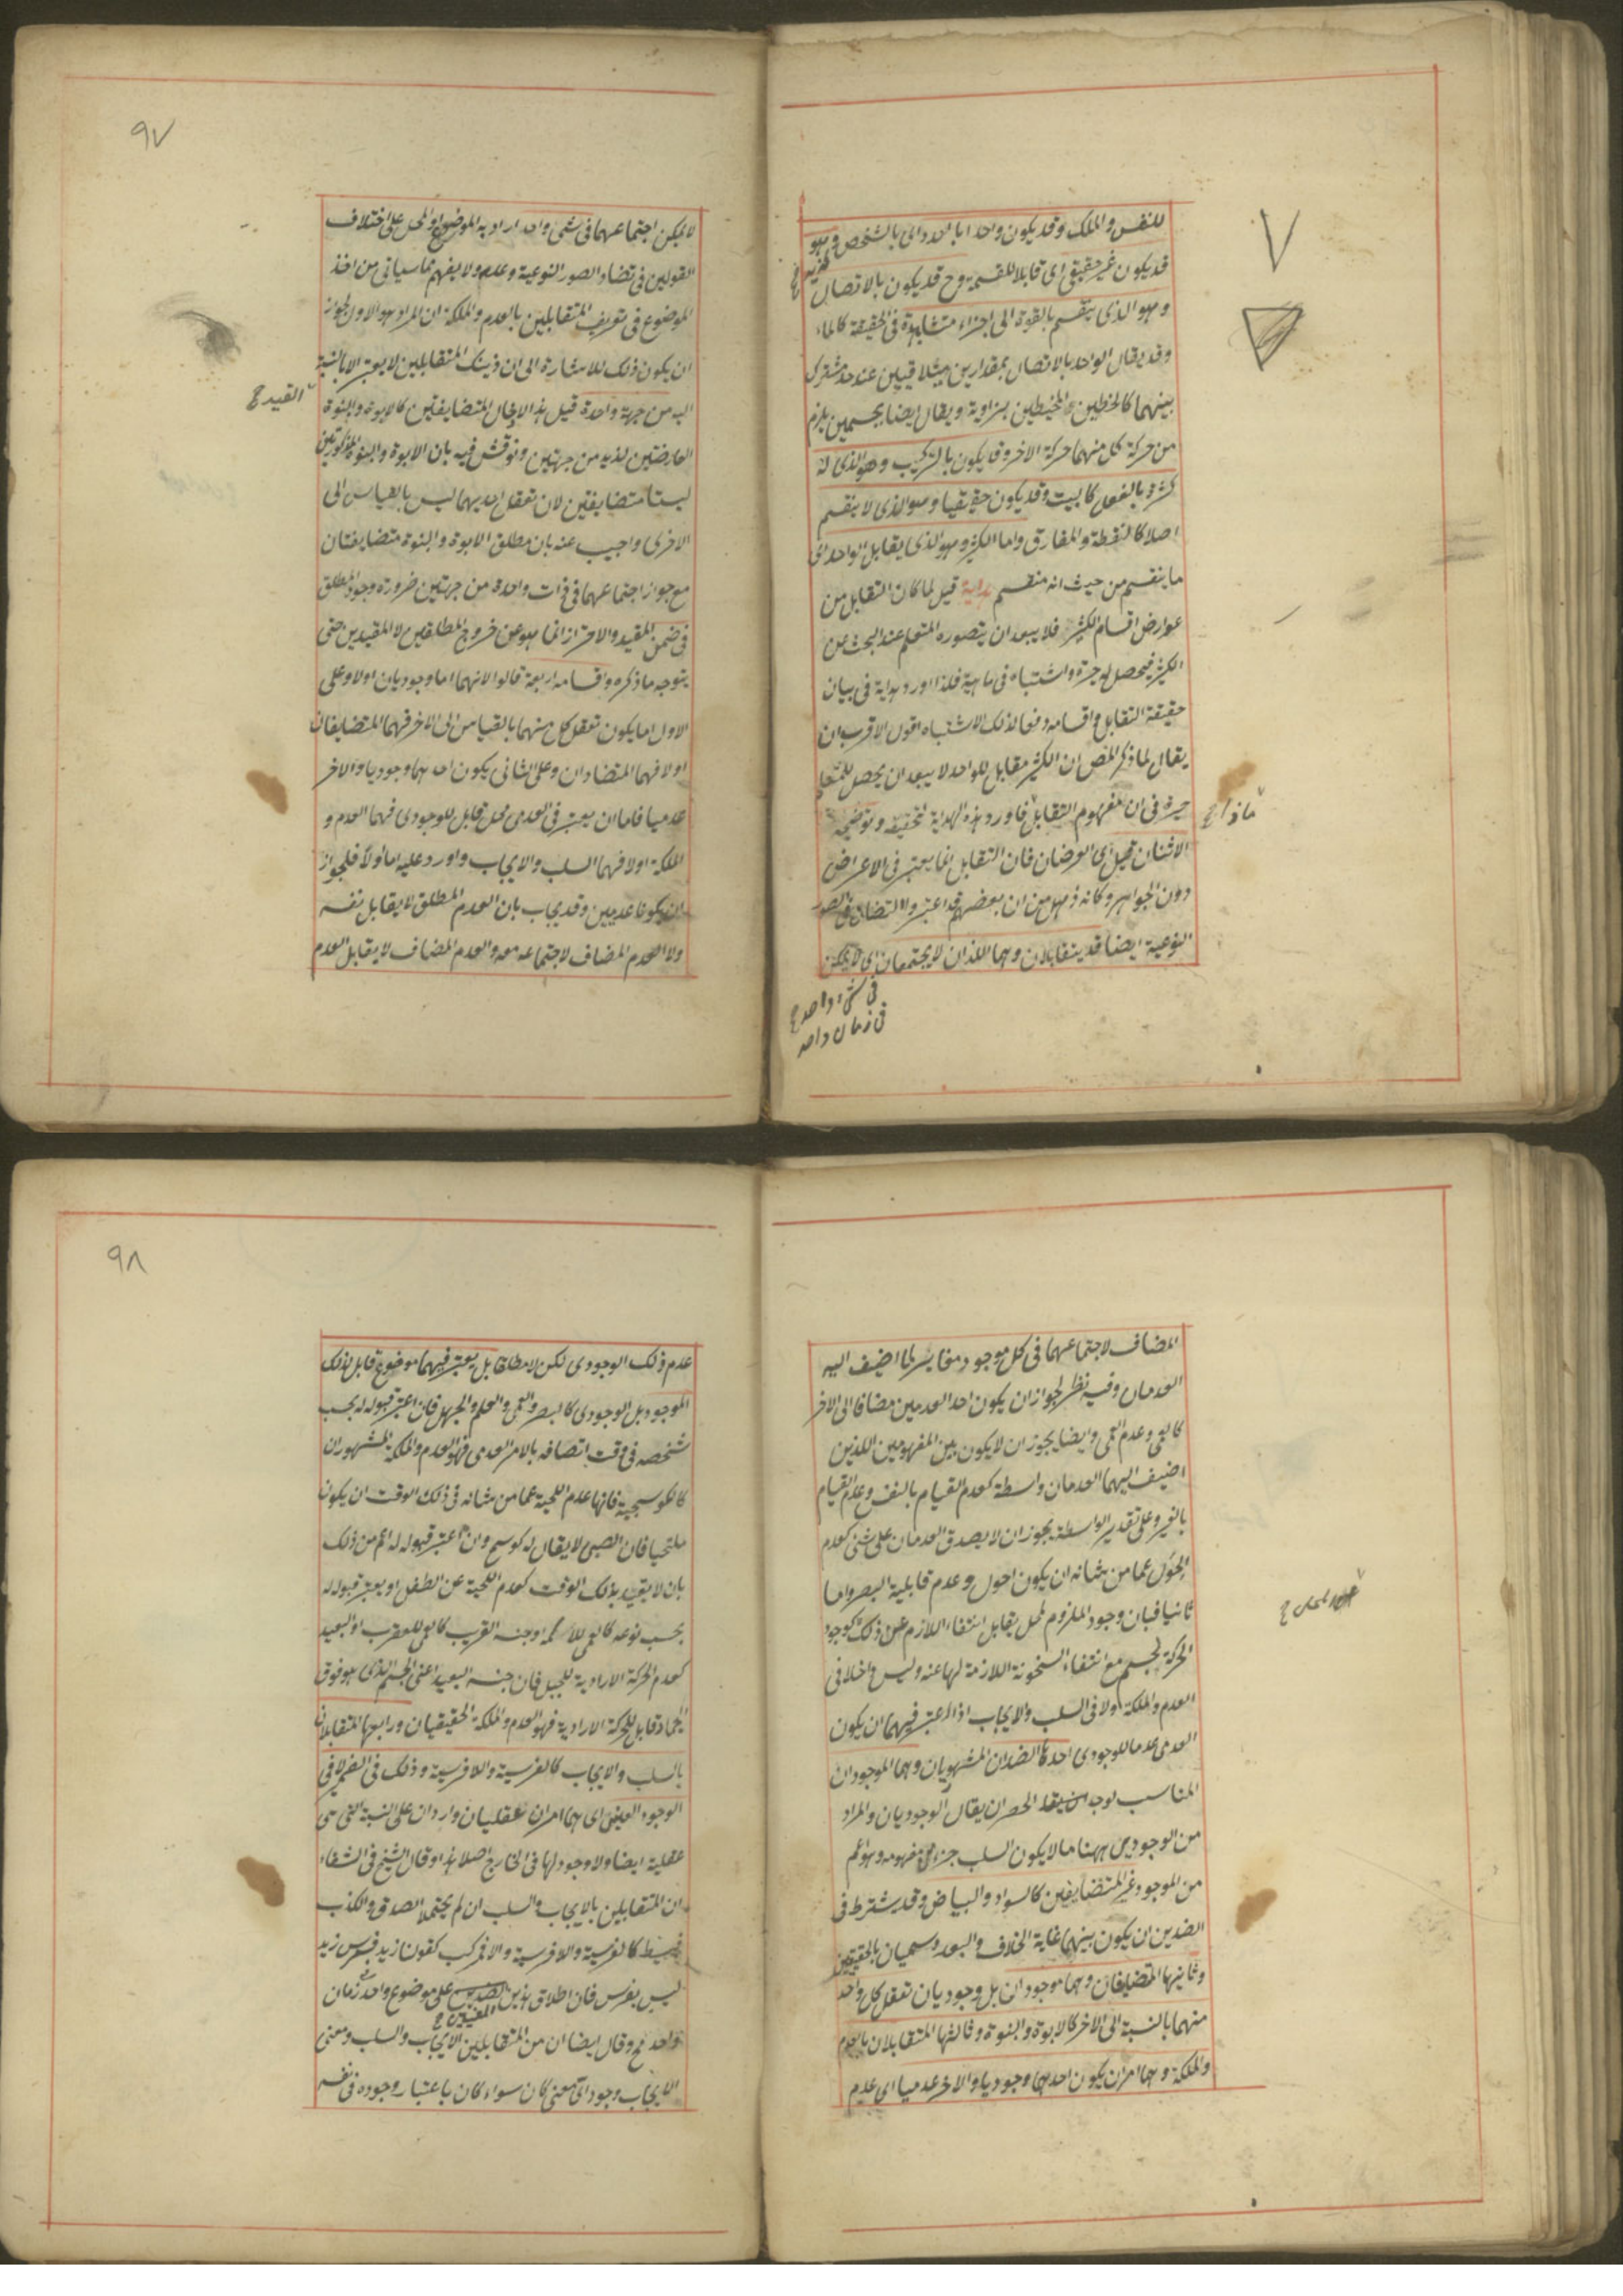 للنفس والملك وقد يكون واحدا بالعدد اى بالشخص وهو
قد يكون غير حقيقى اى قابلا للقسمة وح قد يكون بالاتصال
وهو الذى ينقسم بالقوة الى اجزاء متشابهة فى الحقيقة كالماء
وقد يقال الواحد بالاتصال لمقدارين متلاقيين عند حد مشترك
بينهما كالخطين المحيطين بزاوية ويقال ايضا لجسمين يلزم
من حركة كل منهما حركة الاخر وقد يكون بالتركيب وهو الذى له
كثرة بالفعل كالبيت وقد يكون حقيقيا وهو الذى لا ينقسم
اصلا كالنقطة والمفارق واما الكثير وهو الذى يقابل الواحد اى
ما ينقسم من حيث انه منقسم هداية قيل لما كان التقابل من
عوارض اقسام الكثير فلا يبعد ان يتصوره المتعلم عند البحث عن
الكثير فيحصل له حيرة واشتباه فى ماهية فلذا اورد هداية فى بيان
حقيقة التقابل واقسامه دفعا لذلك الاشتباه اقول الاقرب ان
يقال لما ذكر المص ان الكثير مقابل للواحد لا يبعد ان يحصل للمتعلم
حيرة فى ان مفهوم التقابل فاورد هذه الهداية لتحقيقه وتوضيحه
ماذا ح
الاثنان قيل اى العرضان فان التقابل انما يعتبر فى الاعراض
دون الجواهر وكانه ذهول من ان بعضهم قد اعتبروا التضاد فى الصور
النوعية ايضا قد يتقابلان وهما اللذان لا يجتمعان اى لا يمكن
فى شىء واحد ح
فى زمان واحد
٩٧
لا يمكن اجتماعهما فى شىء واحد اراد به الموضوع او المحل على اختلاف
القولين فى تضاد الصور النوعية وعدمه ولا يفهم مما سياتى من اخذ
الموضوع فى تعريف المتقابلين بالعدم والملكة ان المراد هو الاول لجواز
ان يكون ذلك للاشارة الى ان ذينك المتقابلين لا يعتبر الا بالنسبة
اليه من جهة واحدة قيل هذا لادخال المتضايفين كالابوة والبنوة
القيد ح
العارضتين لزيد من جهتين ونوقش فيه بان الابوة والبنوة المذكورتين
ليستا متضايفتين لان تعقل احديهما ليس بالقياس الى
الاخرى واجيب عنه بان مطلق الابوة والبنوة متضايفتان
مع جواز اجتماعهما فى ذات واحدة من جهتين ضرورة وجود المطلق
فى ضمن المقيد والاحتراز انما هو عن خروج المطلقين لا المقيدين حتى
يتوجه ما ذكره واقسامه اربعة قالوا لانهما اما وجوديان اولا وعلى
الاول اما يكون تعقل كل منهما بالقياس الى الاخر فهما المتضايفان
او لا فهما المتضادان وعلى الثانى يكون احدهما وجوديا والاخر
عدميا فاما ان يعتبر فى العدمى محل قابل للوجودى فهما العدم و
الملكة اولا فهما السلب والايجاب واورد عليه اما اولا فلجواز
ان يكونا عدميين وقد يجاب بان العدم المطلق لا يقابل نفسه
ولا العدم المضاف لاجتماعه معه والعدم المضاف لا يقابل العدم
المضاف لاجتماعهما فى كل موجود مغاير لما اضيف اليه
العدمان وفيه نظر لجواز ان يكون احد العدمين مضافا الى الاخر
كالعمى وعدم العمى وايضا يجوز ان لا يكون بين المفهومين اللذين
اضيف اليهما العدمان واسطة كعدم القيام بالنفس وعدم القيام
بالغير وعلى تقدير الواسطة يجوز ان لا يصدق العدمان على شىء كعدم
الحول عما من شانه ان يكون احول وعدم قابلية البصر واما
ثانيا فبان وجود الملزوم لمحل يقابل انتفاء اللازم عن ذلك كوجود
الحركة لجسم مع انتفاء السخونة اللازمة لها عنه وليس داخلا فى
العدم والملكة ولا فى السلب والايجاب اذ المعتبر فيهما ان يكون
العدمى عدما للوجودى احدها الضدان المشهوريان وهما الموجودان
المناسب لوجه الحصر ان يقال الوجوديان والمراد
من الوجودى ههنا ما لا يكون السلب جزء من مفهومه وهو اعم
من الموجود غير المتضايفين كالسواد والبياض وقد يشترط فى
الضدين ان يكون بينهما غاية الخلاف والبعد ويسميان بالحقيقيين
وثانيها المتضايفان وهما موجودان بل وجوديان تعقل كل واحد
منهما بالنسبة الى الاخر كالابوة والبنوة وثالثها المتقابلان بالعدم
والملكة وهما امران يكون احدهما وجوديا والاخر عدميا اى عدم
٩٨
عدم ذلك الوجودى لكن لا مطلقا بل يعتبر فيهما موضوع قابل لذلك
الموجود بل الوجودى كالبصر والعمى والعلم والجهل فان اعتبر قبوله له بحسب
شخصه فى وقت اتصافه بالامر العدمى فهو العدم والملكة المشهوران
كالكوسجية فانها عدم اللحية عما من شانه فى ذلك الوقت ان يكون
ملتحيا فان الصبى لا يقال له كوسج وان اعتبر قبوله له اعم من ذلك
بان لا يقيد بذلك الوقت كعدم اللحية عن الطفل او يعتبر قبوله له
بحسب نوعه كالعمى للاكمه او جنسه القريب كالعمى للعقرب او البعيد
كعدم الحركة الارادية للجبل فان جنسه البعيد اعنى الجسم الذى هو فوق
الجماد قابل للحركة الارادية فهو العدم والملكة الحقيقيان ورابعها المتقابلان
بالسلب والايجاب كالفرسية واللافرسية وذلك فى الضمير لا فى
الوجود العينى اى هما امران عقليان واردان على النسبة التى هى
عقلية ايضا ولا وجود لها فى الخارج اصلا هذا وقال الشيخ فى الشفاء
ان المتقابلين بالايجاب والسلب ان لم يحتملا الصدق والكذب
فبسيط كالفرسية واللافرسية والا فمركب كقولنا زيد فرس زيد
ليس بفرس فان اطلاق هذين على موضوع واحد فى زمان
المعنيين ح
واحد مح وقال ايضا ان من المتقابلين الايجاب والسلب ومعنى
الايجاب وجود اى معنى كان سواء كان باعتبار وجوده فى نفسه